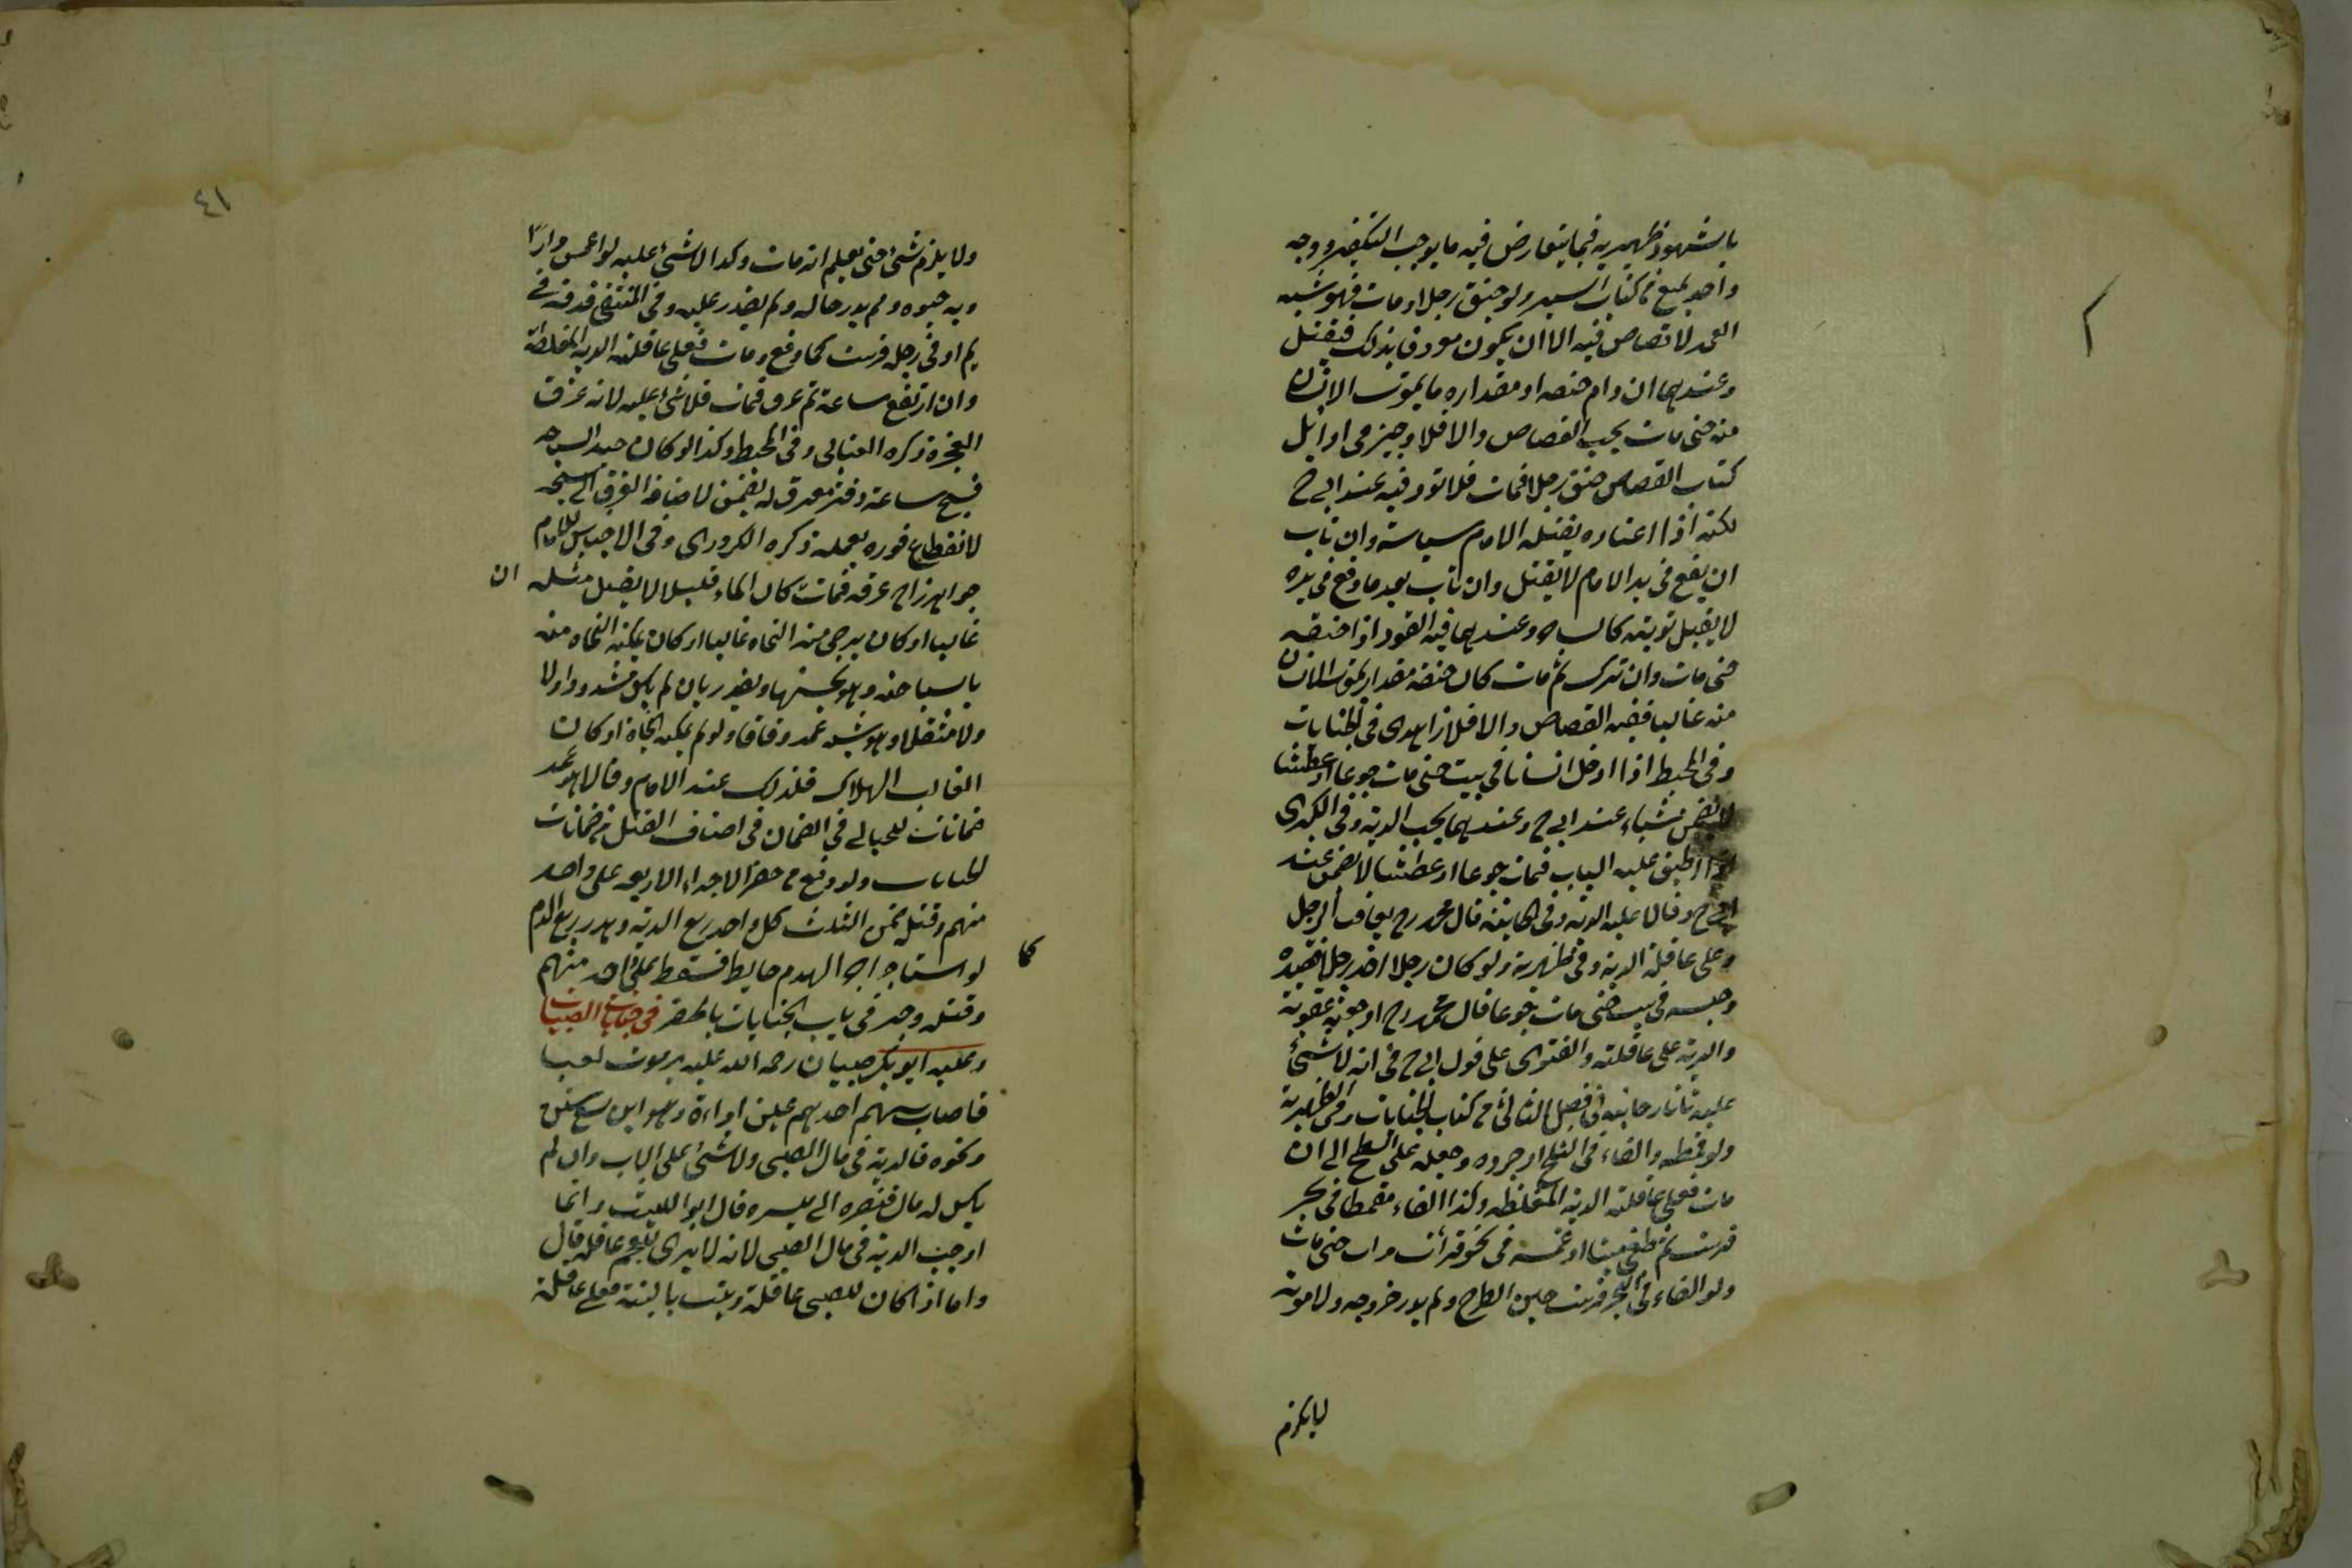 بالشهود ظهيرية فيما يتعارض فيه ما يوجب التكفير ووجه
واحد يمنع من كتاب السير ولو خنق رجلا ومات فهو شبه
العمد لا قصاص فيه الا ان يكون معروفا بذلك فيقتل
وعندهما ان دام خنقه او مقداره ما يموت الانسان
منه حتى مات يجب القصاص والا فلا وجيز في اوائل
كتاب القصاص خنق رجلا فمات فلا قود فيه عند ابي ح
لكنه اذا اعتاده يقتله الامام سياسة وان تاب
ان يقع في يد الامام لا يقتل وان تاب بعد ما وقع في يده
لا يقبل توبته كالساحر وعندهما فيه القود اذا خنقه
حتى مات وان ترك ثم مات كان خنقه مقدار يموت الانسان
منه غالبا ففيه القصاص والا فلا زاهدي في الجنايات
وفي المحيط اذا ادخل انسانا في بيت حتى مات جوعا او عطشا
لا يضمن شياء عند ابي ح وعندهما يجب الدية وفي الكبرى
اذا اطبق عليه الباب فمات جوعا او عطشا لا يضمن عند
ابي ح وقالا عليه الدية وفي الخانية قال محمد رح يعاقب الرجل
وعلى عاقلة الدية وفي ظهيرية ولو كان رجلا اخذ رجلا فقيده
وحبسه في بيت حتى مات جوعا قال محمد رح اوجعه عقوبة
والدية على عاقلته والفتوى على قول ابي ح في انه لا شئ
عليه تاتارخانية في فصل الثاني من كتاب الجنايات وفي الظهيرية
ولو قمطه والقاه في الثلج او جرده وجعله على السطح الى ان
مات فعلى عاقلته الدية المغلظة وكذا القاه مقمطا في بحر
فرسب ثم طفى ميتا او غمسه في نحو فرات مرات حتى مات
ولو القاه في البحر فرسب حين الطرح ولم يدر خروجه ولا موته
لا يلزم
٤١
ولا يلزم شئ حتى يعلم انه مات وكذا لا شئ عليه لو
ولم يدر حاله ولم يقدر عليه وفي المنتقى قذفه في
يم او في رجل فرسب كما وقع ومات فعلى عاقلته الدية المغلظة
وان ارتفع ساعة ثم غرق فمات فلا شئ عليه لانه غرق
العجزه ذكره العتابي وفي المحيط وكذا لو كان جيد السباحة
فسبح ساعة وفتر فغرق لم يضمن لاضافة الغرق الى عجزه
لانقطاع فوره بعمله ذكره الكروري وفي الاجناس للامام
غرقه فمات كان الماء قليلا لا يقتل مثله ان
غالبا او كان يرجى منه النجاه غالبا او كان يمكنه النجاه منه
بالسباحة وهو يحسنها ويقدر بان لم يكن مشدودا ولا
ولا مثقلا وهو شبه عمد وفاقا ولو لم يمكن النجاة او كان
الغالب الهلاك فكذلك عند الامام وقالا هو عمد
ضمانات في الضمان في اصناف القتل من ضمانات
الجنايات ولو وقع من حفر الاجراء الاربعة على واحد
منهم وقتله ضمن الثلث كل واحد ربع الدية وهدر ربع الدم
كما
لو استاجر لهدم حايط فسقط على احد منهم
وقتله وجيز في باب الجنايات بالحفر في جنايات الصبيان
وعليه ابو بكر صبيان رحمة الله عليه يرمون لعبا
فاصاب سهم احدهم عين امراءة وهو ابن تسع سنين
ونحوه فالدية في مال الصبي ولا شئ على الاب وان لم
يكن له مال فنظره الى ميسره قال ابو الليث وانما
اوجب الدية في مال الصبي لانه لا يرى للعجم عاقلة قال
واما اذا كان للصبي عاقلة ويثبت بالبينة فعلى عاقلة